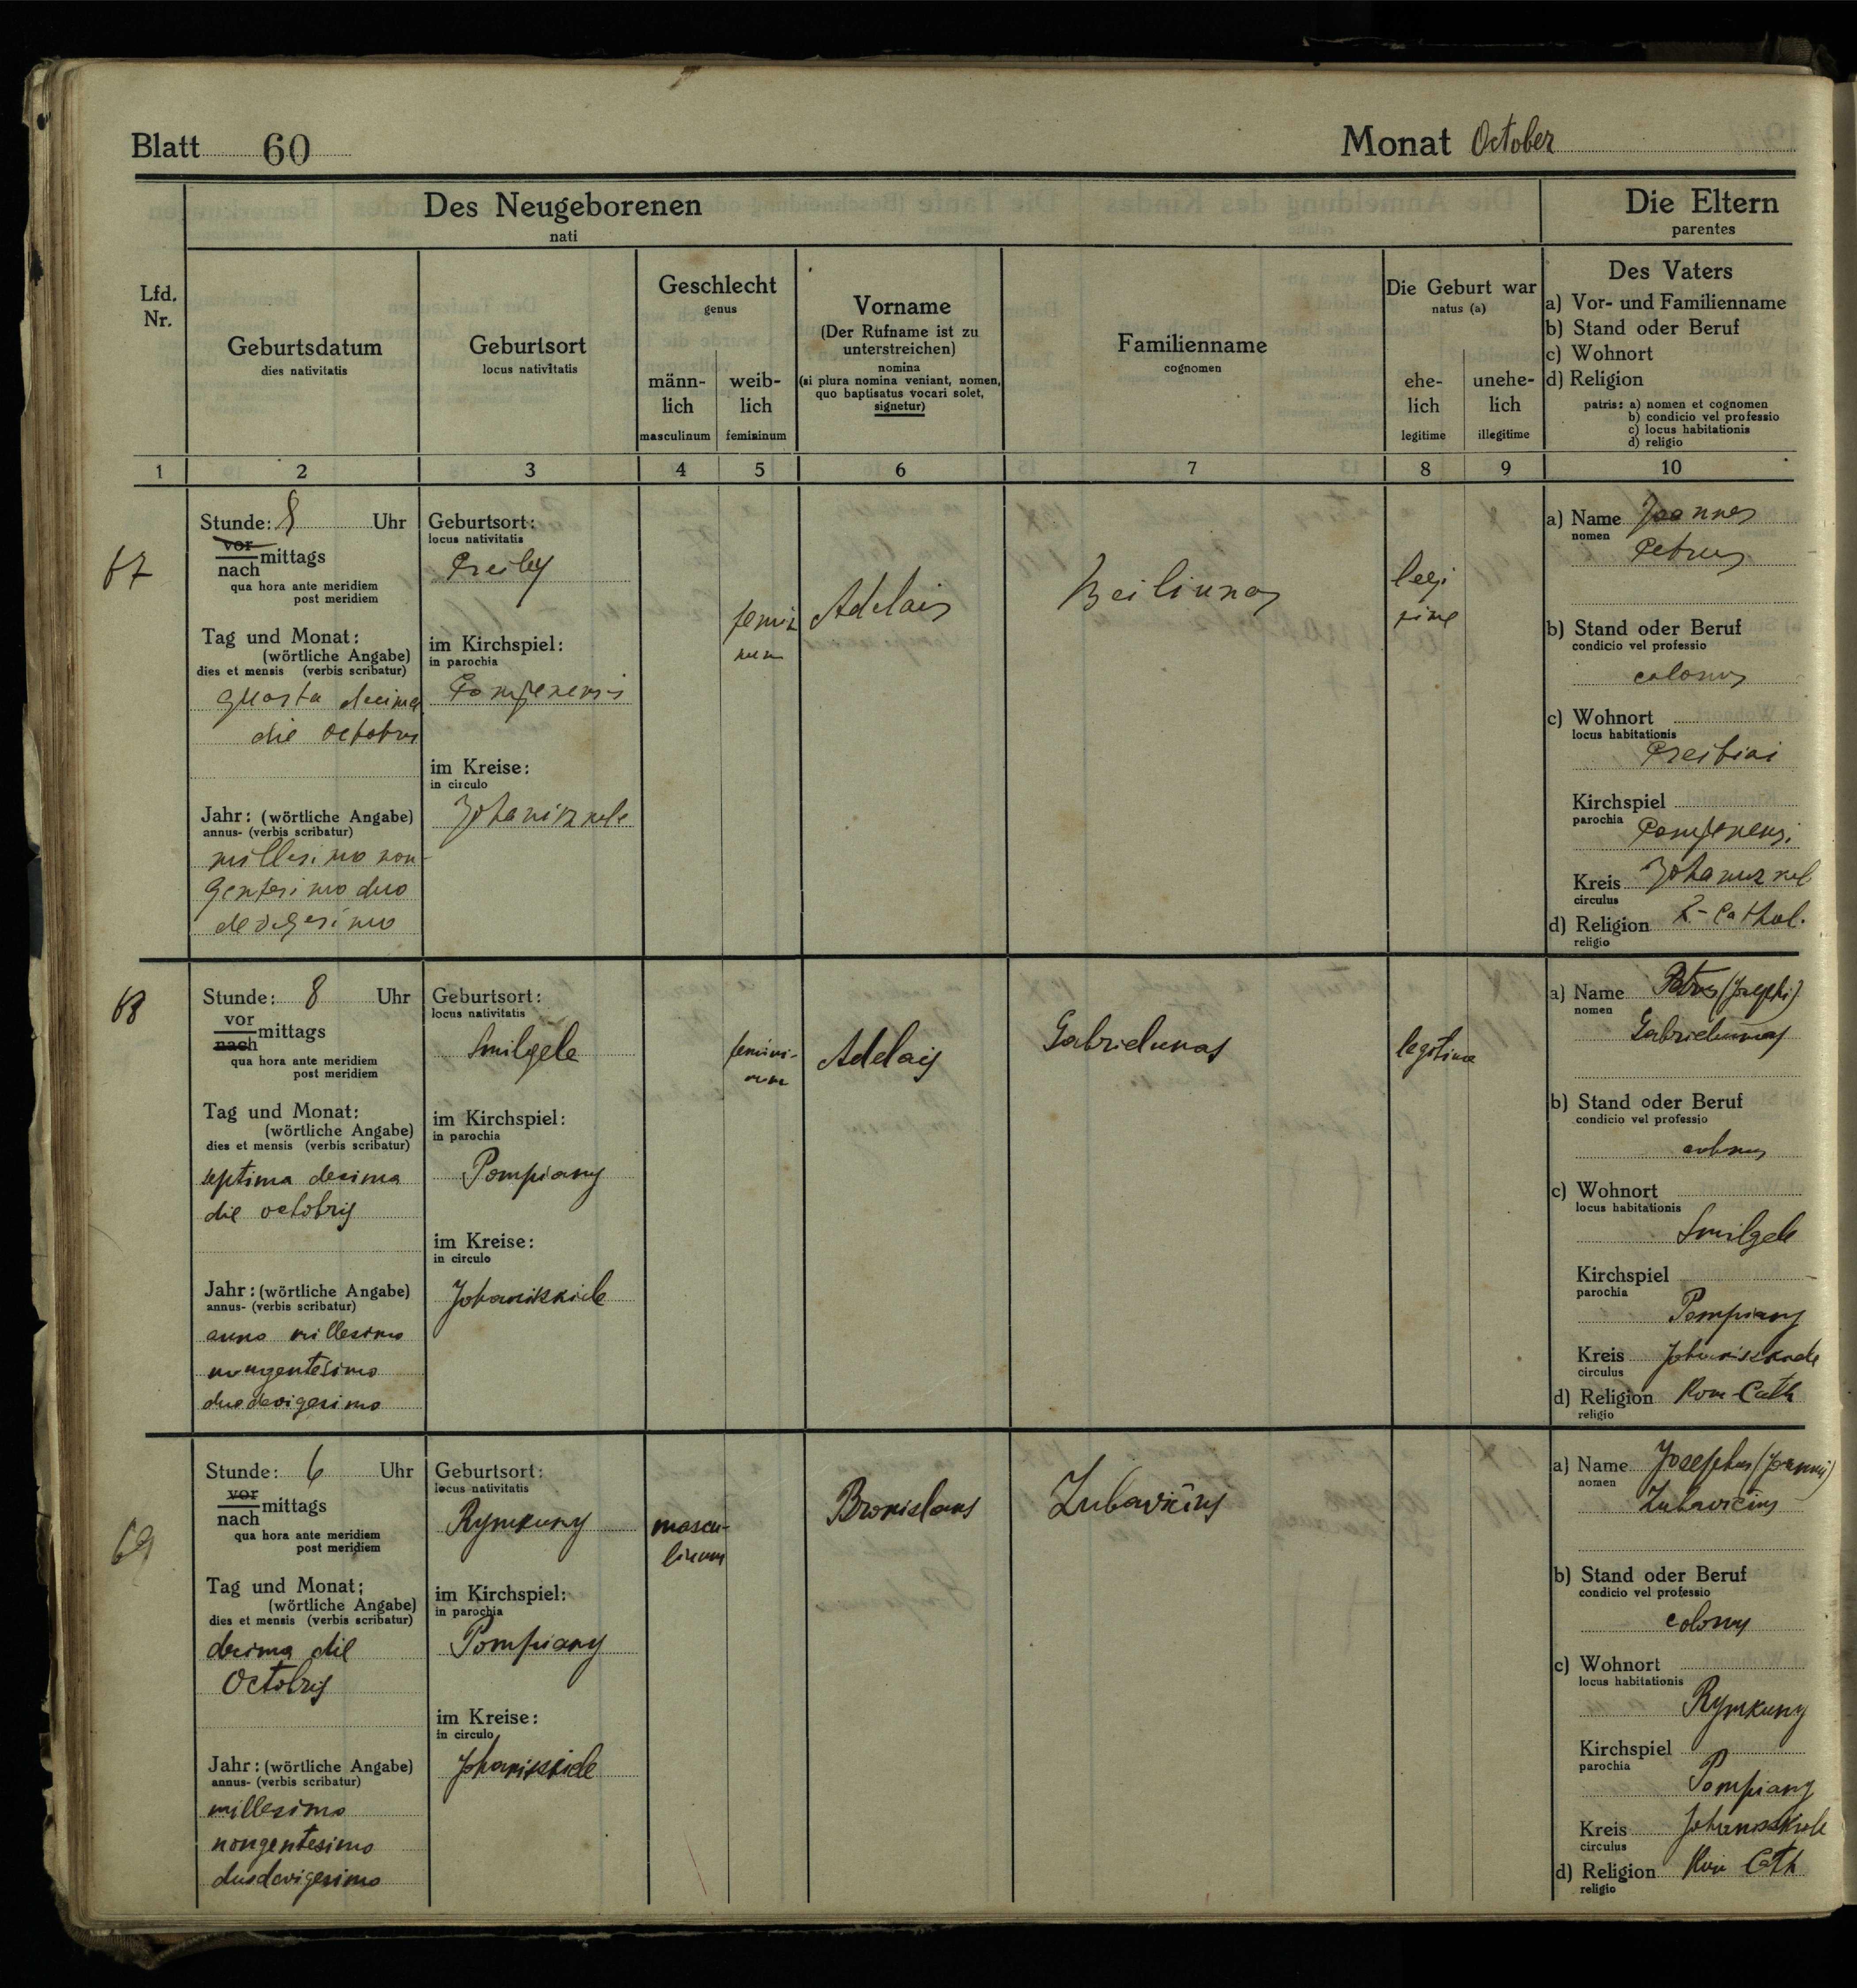 Blatt 60
Monat October
Des Neugeborenen
nati
Die Eltern
parentes
Lfd.
Nr.
Geburtsdatum
dies nativitatis
Geburtsort
locus nativitatis
Geschlecht
genus
männ-
lich
masculinum
weib-
lich
femininum
Vorname
(Der Rufname ist zu
unterstreichen)
nomina
(si plura nomina veniant, nomen,
quo baptisatus vocari solet,
signetur)
Familienname
cognomen
Die Geburt war
natus (a)
ehe-
lich
legitime
unehe-
lich
illegitime
Des Vaters
a) Vor- und Familienname
b) Stand oder Beruf
c) Wohnort
d) Religion
patris: a) nomen et cognomen
b) condicio vel professio
c) locus habitationis
d) religio
1 2 3 4 5 6 7 8 9 10
67
Stunde: 8 Uhr
vor
nach mittags
qua hora ante meridiem
post meridiem
Tag und Monat:
(wörtliche Angabe)
dies et mensis (verbis scribatur)
quarta decima
die octobris
Jahr: (wörtliche Angabe)
annus- (verbis scribatur)
millesimo non-
gentesimo duo
devigesimo
Geburtsort:
locus nativitatis
im Kirchspiel:
in parochia
im Kreise:
in circulo
femin
num
Adelais
Beiliunas
a) Name Joannes
nomen
Petrus
b) Stand oder Beruf
condicio vel professio
colonus
c) Wohnort
locus habitationis
Kirchspiel
parochia
Kreis
circulus
d) Religion R-Cathol.
religio
68
Stunde: 8 Uhr
vor
nach mittags
qua hora ante meridiem
post meridiem
Tag und Monat:
(wörtliche Angabe)
dies et mensis (verbis scribatur)
septima decima
die octobris
Jahr: (wörtliche Angabe)
annus- (verbis scribatur)
anno millesimo
nongentesimo
duodevigesimo
Geburtsort:
locus nativitatis
Smilgele
im Kirchspiel:
in parochia
Pompiany
im Kreise:
in circulo
Johaniskiele
femini-
num
Adelais
Gabrielunas
legitime
a) Name Petrus (Josephi)
nomen
Gabrielunas
b) Stand oder Beruf
condicio vel professio
colonus
c) Wohnort
locus habitationis
Smilgele
Kirchspiel
parochia
Pompiany
Kreis
circulus
d) Religion Rom-Cath
religio
69
Stunde: 6 Uhr
vor
nach mittags
qua hora ante meridiem
post meridiem
Tag und Monat:
(wörtliche Angabe)
dies et mensis (verbis scribatur)
decima die
Octobris
Jahr: (wörtliche Angabe)
annus- (verbis scribatur)
millesimo
nongentesimo
duodevigesimo
Geburtsort:
locus nativitatis
Rymkuny
im Kirchspiel:
in parochia
Pompiany
im Kreise:
in circulo
Johaniskiele
mascu-
linum
Bronislaus
Zubavičius
a) Name Josephus (Joannis)
nomen
Zubavičius
b) Stand oder Beruf
condicio vel professio
colonus
c) Wohnort
locus habitationis
Rymkuny
Kirchspiel
parochia
Pompiany
Kreis
circulus
d) Religion Rom Cath
religio